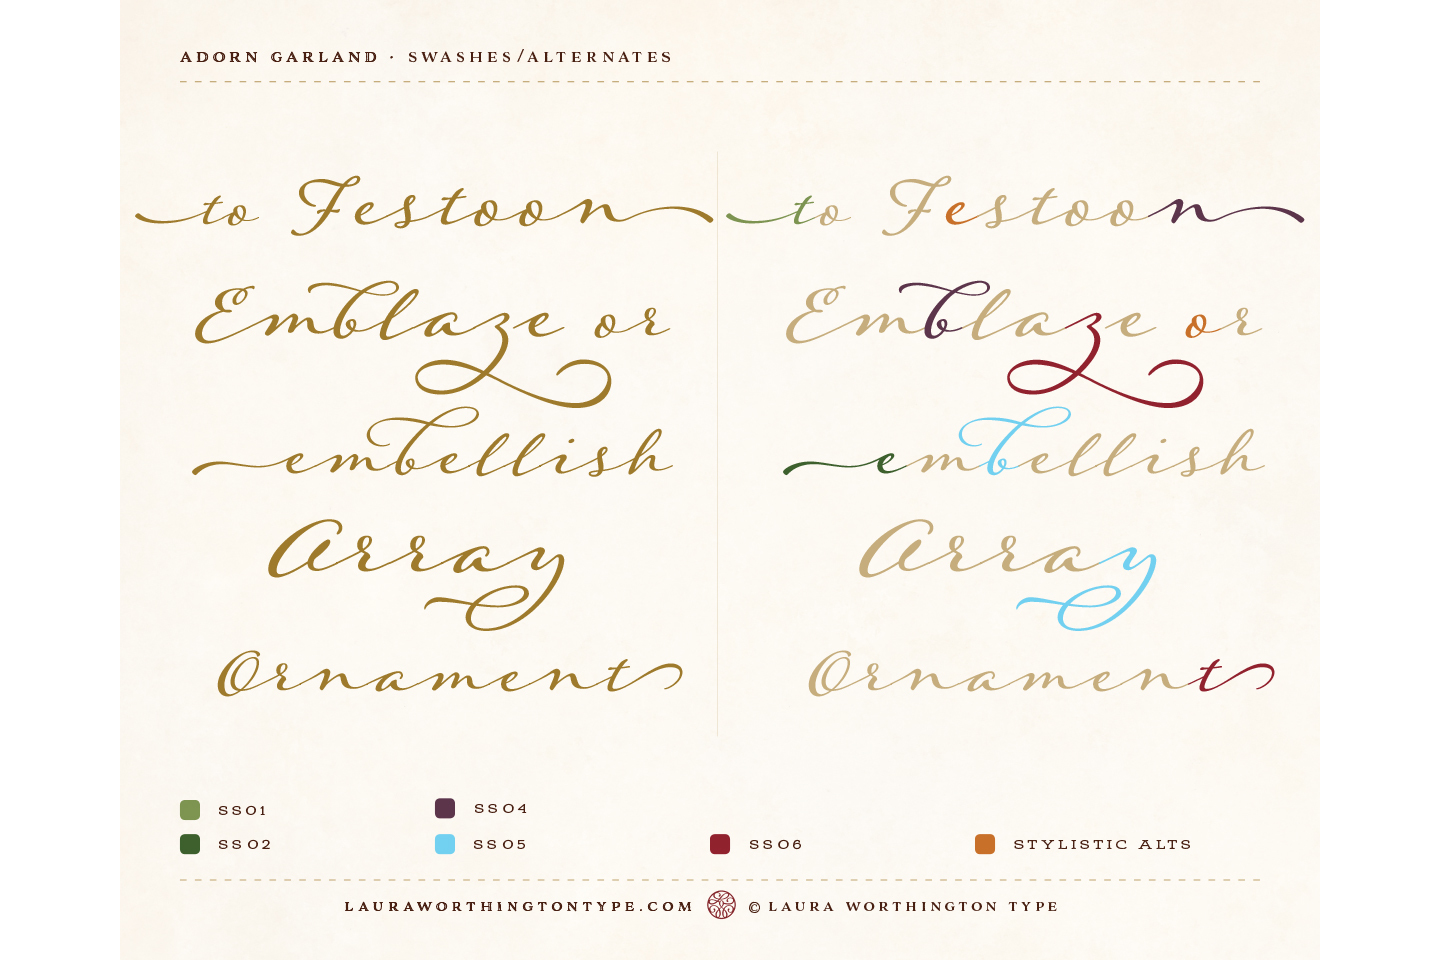 ADORN GARLAND · SWASHES/ALTERNATES
to Festoon
Emblaze or
embellish
Array
Ornament
to Festoon
Emblaze or
embellish
Array
Ornament
SS01
SS04
SS02
SS05
SS06
STYLISTIC ALTS
LAURAWORTHINGTONTYPE.COM © LAURA WORTHINGTON TYPE